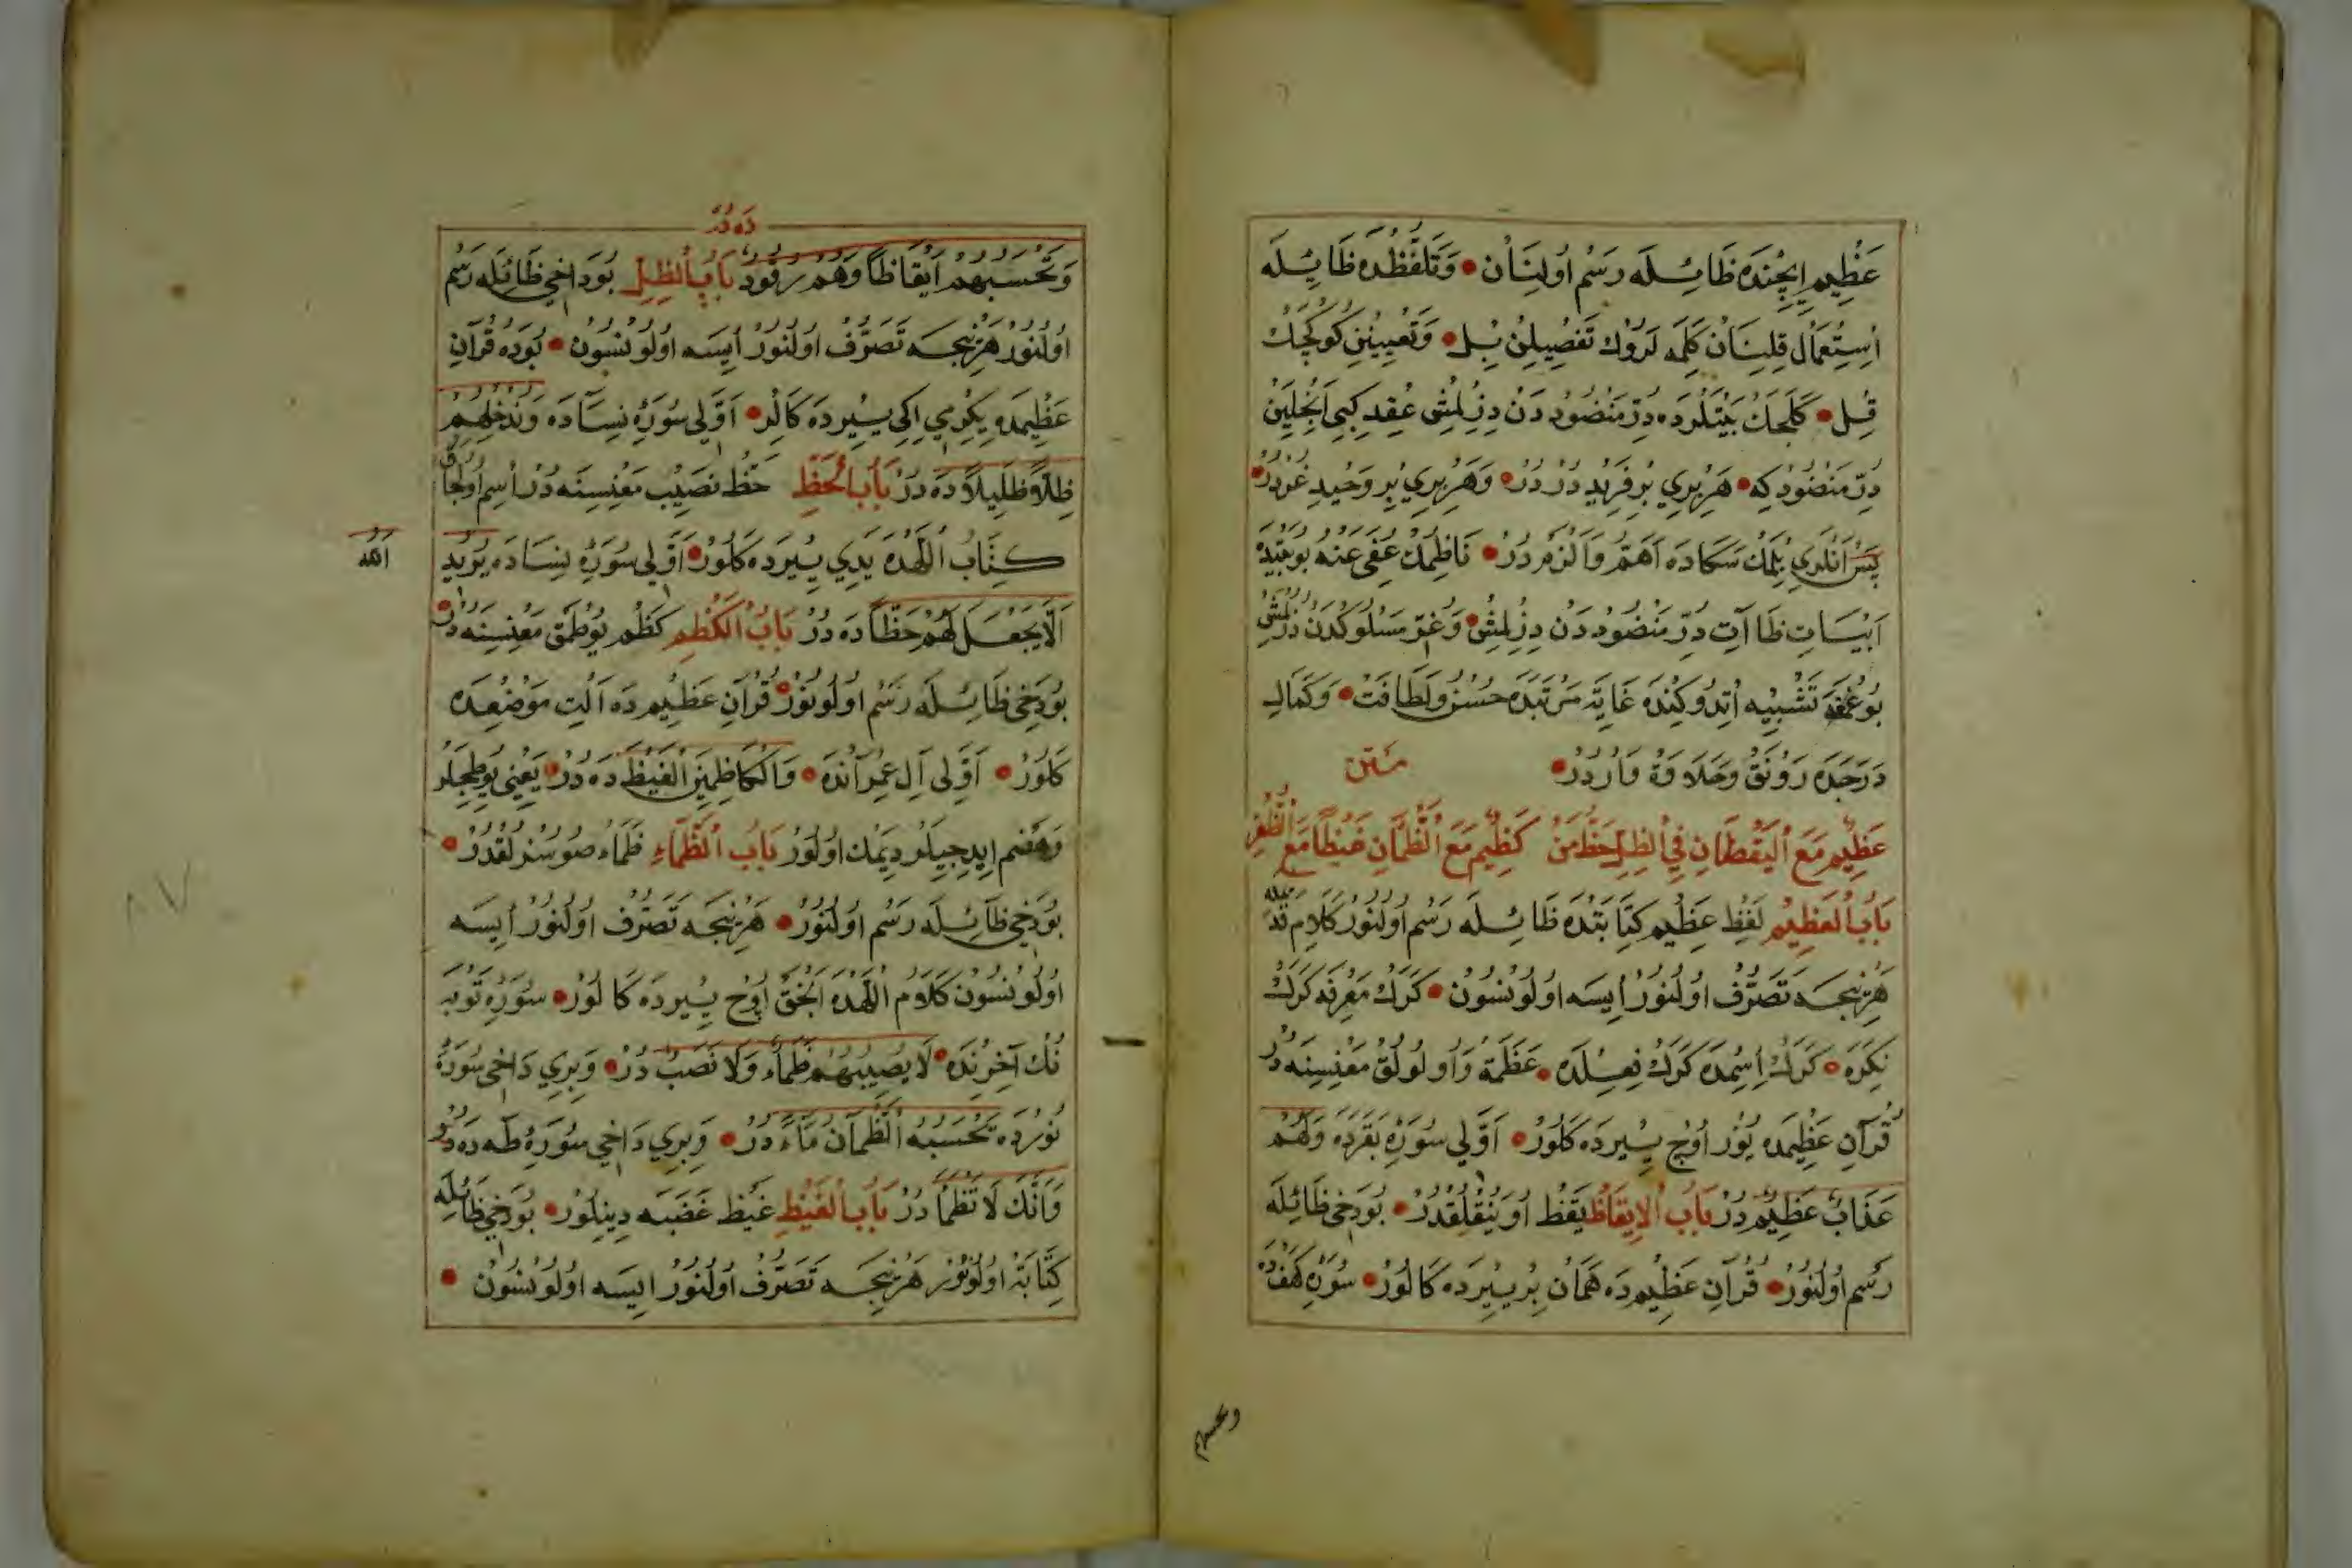 عَظِيمِ اِيچِنْدَه ظَا ئِيلَه رَسْم اُولِنَانْ • وَتَلَفُّظْدَه ظَا ئِيلَه
اِسْتِعْمَال قِلِنَانْ كَلِمَه لَرُوكْ تَفْصِيلِنْ بِل • وَتَعْيِينِنْ كُوكْچَكْ
قِل • كَلَجَكْ بَيْتْلَرْدَه دُرِّ مَنْضُود دَنْ دِزِلْمِشْ عِقْد كِبِي اَنْجِلَيِنْ
دُرِّ مَنْضُود كِه • هَرْ بِرِي بِرْ فَرِيد دُرْ دُرْ • وَهَرْ بِرِي بِرِ وَحِيدِ غُرْدُرْ •
پَسْ اَنْلَرِي بِلْمَكْ سَكَا دَه اَهَمُّ وَاَلْزَمْ دُرْ • نَاظِمْكْ عُفِيَ عَنْهُ بُو بَيْتِدَه
اَبْيَاتِ ظَا آتِ دُرِّ مَنْضُود دَنْ دِزِلْمِشْ • وَغُرَرِ مَسْلُوكْدَنْ دُزُلْمِشْ
بُو عِقْدَه تَشْبِيه اِتْدُوكِنْدَه غَايَةِ مَرْتَبَدَه حُسْنُ وَلَطَافَتْ • وَكَمَالِ
دَرَجَدَه رَوْنَقْ وَحَلَاوَة وَارْدُرْ • مَتْن
عَظِيمٌ مَعَ الْيَقْظَانِ فِي الظِّلِّ حَظُّ مَنْ كَظِيمٌ مَعَ الظَّمْآنِ غَيْظًا مَعَ الظُّفْرِ
بَابُ الْعَظِيمِ لَفْظِ عَظِيمِ كِتَابَتْدَه ظَا ئِيلَه رَسْم اُولُنُورْ كَلَامِ قَدِيمْدَه
هَرْ نِيجَه تَصَرُّف اُولُنُورْ اِيسَه اُولُونْسُونْ • كَرَكْ مَعْرِفَه كَرَكْ
نَكِرَه • كَرَكْ اِسِمْدَه كَرَكْ فِعِلْدَه • عَظَمَة وَاُولُولُقْ مَعْنِسِنَه دُرْ
قُرْآنِ عَظِيمَدَه يُوزْ اُوچْ يِيرْدَه كَلُورْ • اَوَّلِي سُورَهِ بَقَرَدَه وَلَهُمْ
عَذَابٌ عَظِيمٌ دُرْ بَابُ الْاِيقَاظِ يَقْظ اُويَنِقْلِقْدُرْ • بُودَخِي ظَا ئِلَه
رَسْم اُولُنُورْ • قُرْآنِ عَظِيمْ دَه هَمَانْ بِرْ يِيرْدَه كَالُورْ • سُورَهِ كَهْفْدَه
وتحسبهم
دَه دُرْ
وَتَحْسَبُهُمْ اَيْقَاظًا وَهُمْ رُقُودٌ بَابُ الظِّلِّ بُودَاخِي ظَا ئِلَه رَسْم
اُولُنُورْ هَرْ نِيجَه تَصَرُّف اُولُنُورْ اِيسَه اُولُونْسُونْ • بُودَه قُرْآنِ
عَظِيمَدَه يِكِرْمِي اِكِي يِيرْدَه كَالُرْ • اَوَّلِي سُورَهِ نِسَآ دَه وَنُدْخِلُهُمْ
ظِلًّا ظَلِيلًا دَه دُرْ بَابُ الْحَظِّ حَظّ نَصِيب مَعْنِسِنَه دُرْ اِسِم اُولِجَاقْ
كِتَابُ اللّٰهْدَه يَدِي يِيرْدَه كَلُورْ • اَوَّلِي سُورَهِ نِسَادَه يُرِيدُ
الله
اَلَّا يَجْعَلَ لَهُمْ حَظًّا دَه دُرْ بَابُ الْكَظْمِ كَظْم يُوطْمَقْ مَعْنِسِنَه دُرْ •
بُودَخِي ظَا ئِلَه رَسْم اُولُونُورْ • قُرْآنِ عَظِيمِ دَه آلْتِ مَوْضِعْدَه
كَلُورْ • اَوَّلِي اٰلِ عِمْرَانْدَه • وَالْكَاظِمِينَ الْغَيْظَ دَه دُرْ • يَعْنِي يُوطِجِلَرْ
وَهَضْم اِيدِجِيلَرْ دِيمَكْ اُولُورْ بَابُ الظَّمَاءِ ظَمَاءُ صُوسُزْلُقْدُرْ •
بُودَخِي ظَا ئِلَه رَسْم اُولُنُورْ • هَرْ نِيجَه تَصَرُّف اُولُنُورْ اِيسَه
اُولُونْسُونْ كَلَام اللّٰهْدَه اَنْجَقْ اُوچْ يِيرْدَه كَالُورْ • سُورَهِ تَوْبَه
نُكْ آخِرِنْدَه • لَا يُصِيبُهُمْ ظَمَأٌ وَلَا نَصَبٌ دُرْ • وَبِرِي دَاخِي سُورَهِ
نُورْدَه يَحْسَبُهُ الظَّمْآنُ مَاءً دُرْ • وَبِرِي دَاخِي سُورَهِ طٰه دَه دُرْ
وَاَنَّكَ لَا تَظْمَأُ دُرْ بَابُ الْغَيْظِ غَيْظ غَضَبَه دِينِلُورْ • بُودَخِي ظَا ئِلَه
كِتَابَة اُولُونُورْ هَرْ نِيجَه تَصَرُّف اُولُنُورْ اِيسَه اُولُونْسُونْ •
٨٧